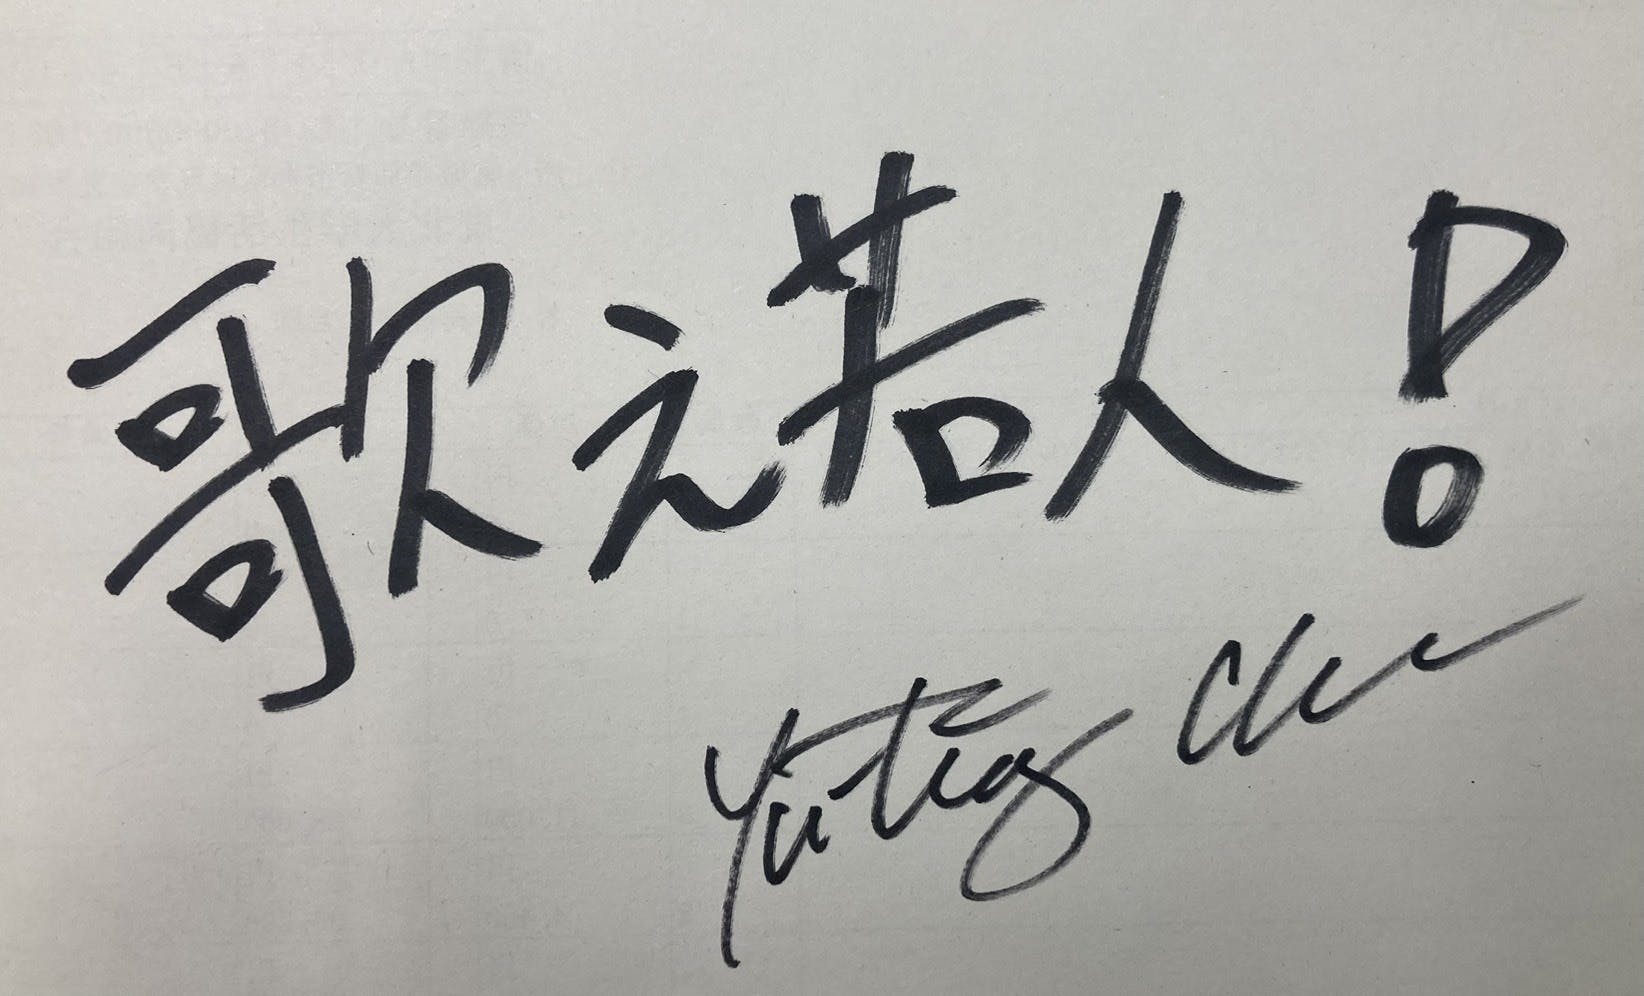 歌之若人!
Yuting Chu